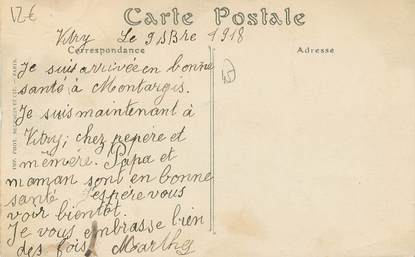 12€
Carte Postale
Vitry Le 9 Sbre 1918
Correspondance
Adresse
Je suis arrivée en bonne
santé à Montargis.
Je suis maintenant à
Vitry; chez pepère et
mémère. Papa et
maman sont en bonne
santé J'espère vous
voir bientôt.
Je vous embrasse bien
des fois. Marthe